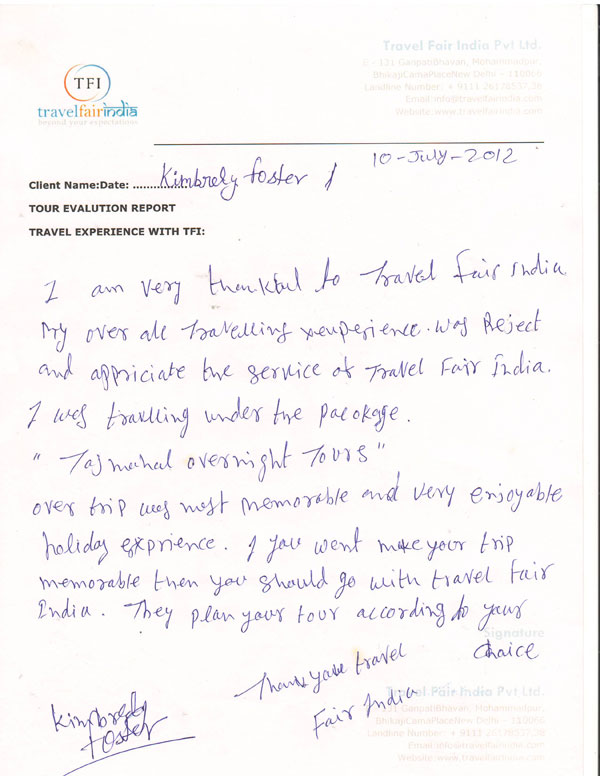 Travel Fair India Pvt Ltd.
E - 131 GanpatiBhavan, Mohammadpur,
BhikajiCamaPlaceNew Delhi - 110066
Landline Number: + 9111 26176537,38
Email:info@travelfairindia.com
Website:www.travelfairindia.com
TFI
travelfairindia
beyond your expectations
10-July-2012
Client Name:Date: ................. Kimbrely foster
TOUR EVALUTION REPORT
TRAVEL EXPERIENCE WITH TFI:
I am very thankful to travel fair India
My over all travelling was Reject
and appriciate the service of Travel Fair India.
I was travlling under the pacokage.
" Tajmahal overnight Tours "
over trip was most memorable and very enjoyable
holiday exprience. if you went make your trip
memorable then you should go with travel fair
India. They plan your tour according to your
Signature
choice
Thank you travel
Fair India
Kimbrely
foster
Travel Fair India Pvt Ltd.
E - 131 GanpatiBhavan, Mohammadpur,
BhikajiCamaPlaceNew Delhi - 110066
Landline Number: + 9111 26176537,38
Email:info@travelfairindia.com
Website:www.travelfairindia.com